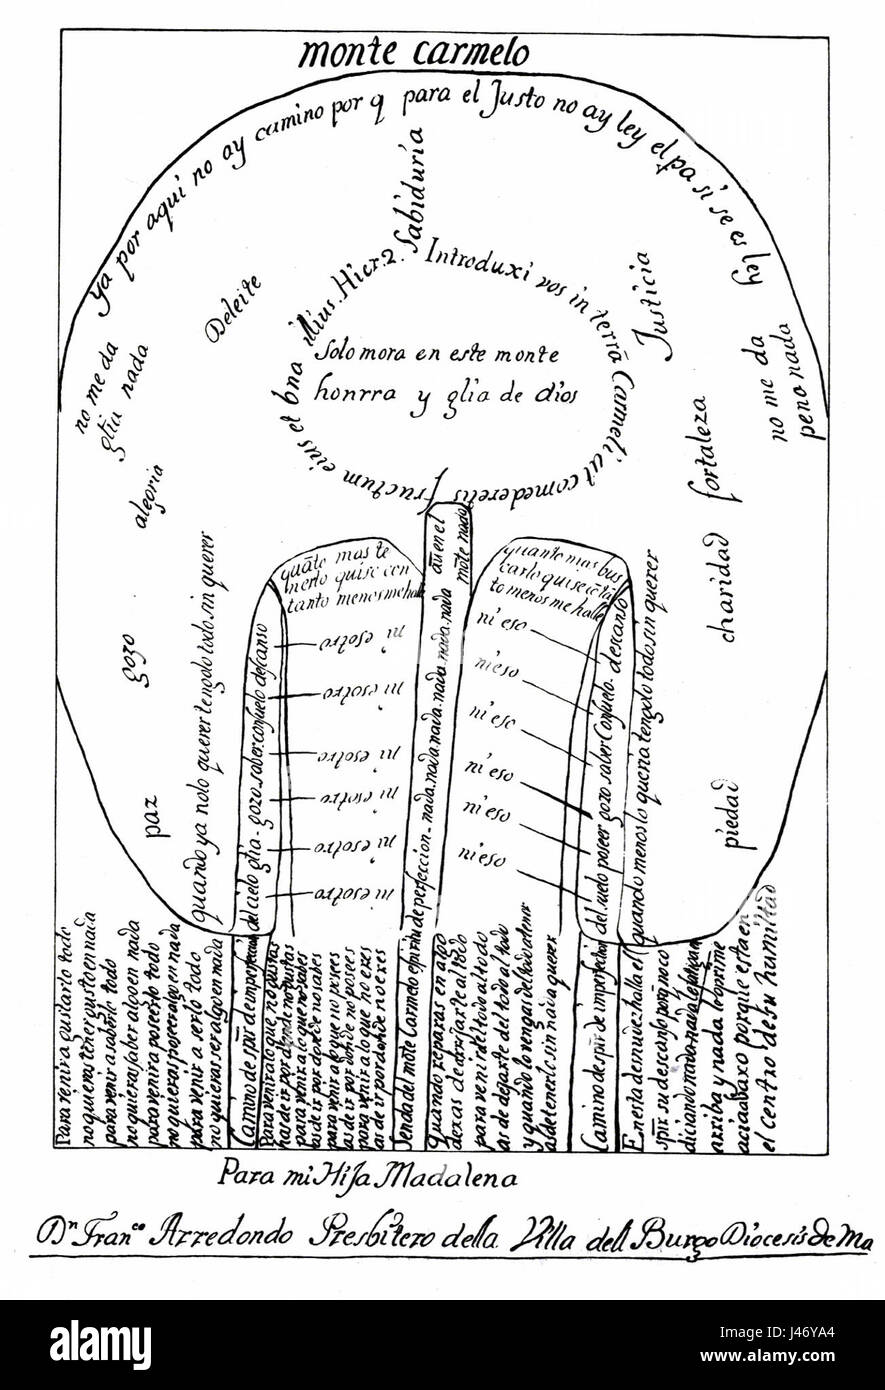 monte carmelo
ya por aqui no ay camino por q para el Justo no ay ley el pa si se es ley
Sabiduría
Deleite
Justicia
no me da
glia nada
no me da
pena nada
alegria
fortaleza
gozo
charidad
paz
piedad
Introduxi vos in terrā Carmeli ut comederetis fructum eius et bna illius. Hier. 2.
Solo mora en este monte
honrra y glia de dios
quāto mas te
nerlo quise con
tanto menos me halle
quanto mas bus
carlo quise cō tā
to menos me halle
ni esotro
ni esotro
ni esotro
ni esotro
ni esotro
ni esotro
ni eso
ni eso
ni eso
ni eso
ni eso
ni eso
aū en el
mōte nada
quando ya no lo querer tengolo todo sin querer
quando menos lo queria tengolo todo sin querer
Para venir a gustarlo todo
no quieras tener gusto en nada
para venir a saberlo todo
no quieras saber algo en nada
para venir a poseerlo todo
no quieras poseer algo en nada
para venir a serlo todo
no quieras ser algo en nada
Camino de spū de imperfecion del cielo glia. gozo. saber. consuelo descanso
Para venir a lo que no gustas
has de ir por donde no gustas
para venir a lo que no sabes
as de ir por donde no sabes
para venir a lo que no posees
as de ir por donde no posees
para venir a lo que no eres
as de ir por donde no eres
Senda del mōte Carmelo espiritu de perfeccion. nada. nada. nada. nada. nada. nada
quando reparas en algo
dexas de arrojarte al todo
para venir del todo al todo
as de dejarte del todo al todo
y quando lo vengas del todo a tener
as de tenerlo sin nada querer
Camino de spū de imperfecion del suelo poseer gozo. saber. Consuelo. descanso
En esta desnudez halla el
spū su descanso porq̄ no co
diciando nada nada le fatiga
arriba y nada le oprime
acia abaxo porque esta en
el centro de su humildad
Para mi Hija Madalena
Dn Franco Arredondo Presbitero della Villa dell Burgo Diocesis de Ma
alamy
Image ID: J46YA4
www.alamy.com